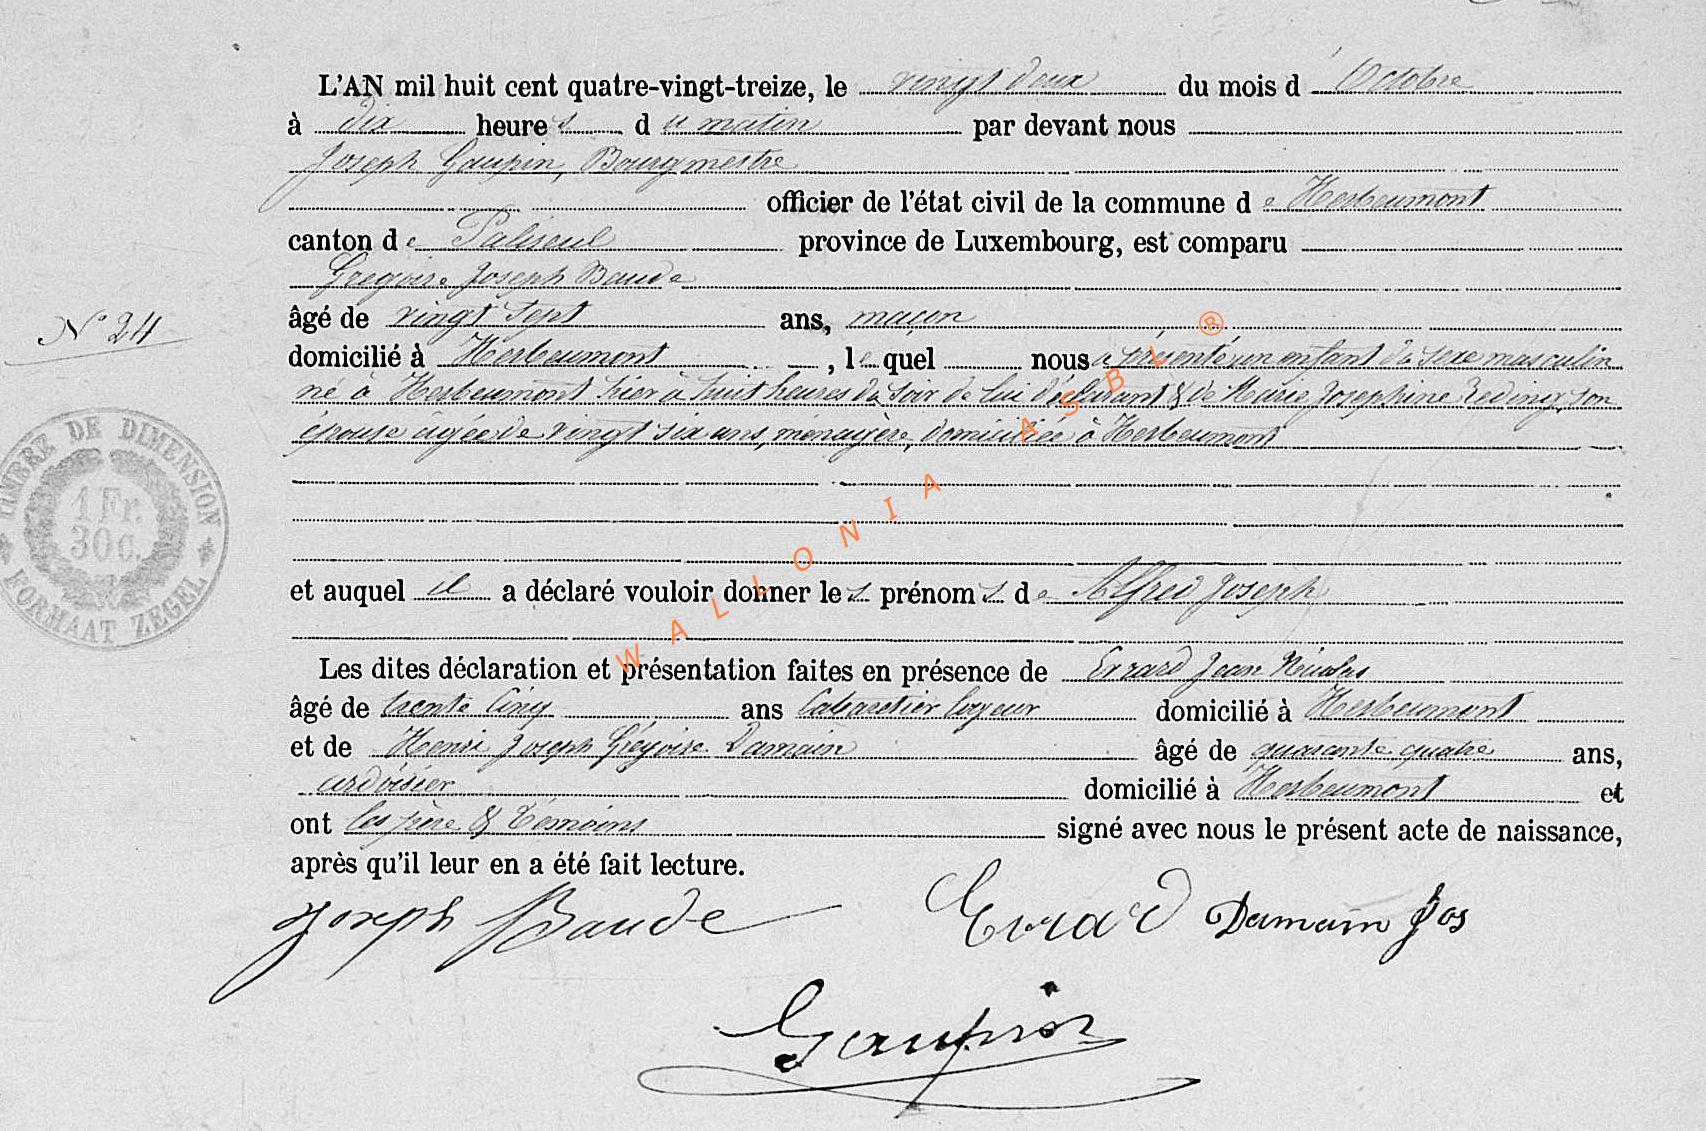 L'AN mil huit cent quatre-vingt-treize, le vingt deux du mois d'Octobre
à dix heures du matin par devant nous
Joseph Gaupin, Bourgmestre
officier de l'état civil de la commune de Herbeumont
canton de Paliseul province de Luxembourg, est comparu
Grégoire Joseph Baude
âgé de vingt sept ans, maçon
N° 24
domicilié à Herbeumont, lequel nous a présenté un enfant du sexe masculin
né à Herbeumont hier à huit heures du soir de lui déclarant & de Marie Josephine Reding, son
épouse âgée de vingt six ans, ménagère, domiciliée à Herbeumont
TIMBRE DE DIMENSION
1 Fr.
30 C.
FORMAAT ZEGEL
et auquel il a déclaré vouloir donner les prénoms de Alfred Joseph
Les dites déclaration et présentation faites en présence de Evrard Jean Nicolas
âgé de trente cinq ans Cabaretier domicilié à Herbeumont
et de Henri Joseph Grégoire Damain âgé de quarante quatre ans,
ardoisier domicilié à Herbeumont et
ont les père & témoins signé avec nous le présent acte de naissance,
après qu'il leur en a été fait lecture.
Joseph Baude Evrard Damain Jos
Gaupin
WALLONIA ASBL ®